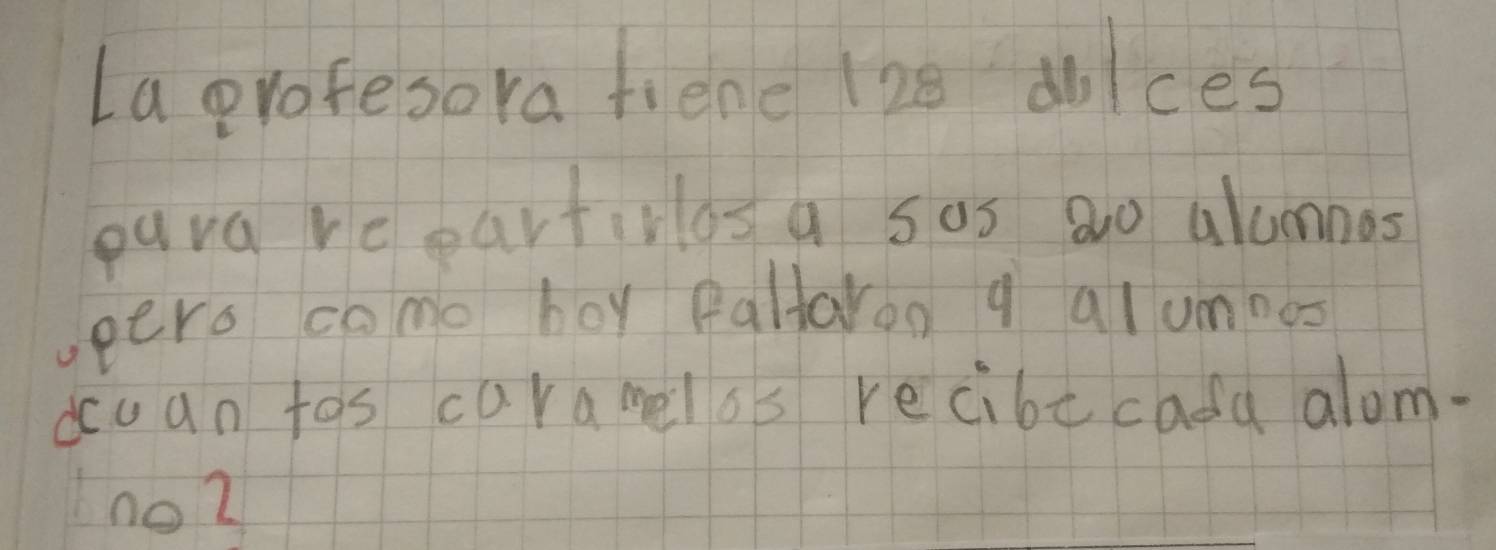 La profesora tiene 128 dulces
para repartirlos a sus 20 alumnos
pero como hoy faltaron 4 alumnos
¿cuan tos caramelos recibe cada alum-
no?